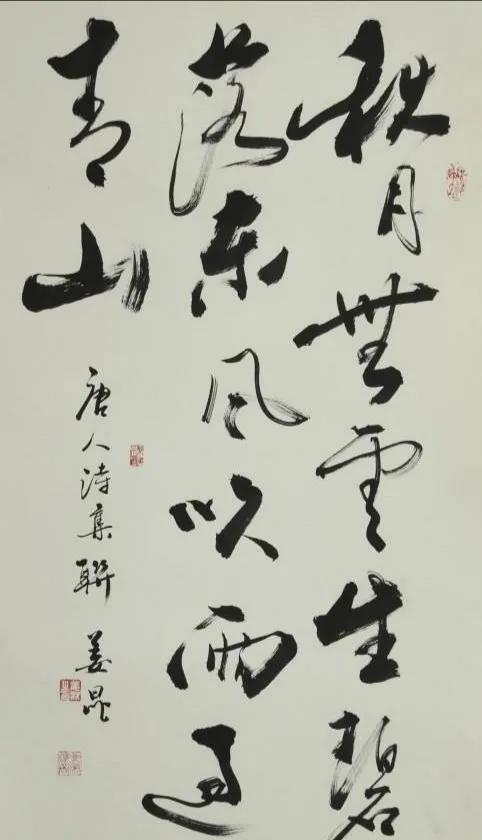 秋月無雲生碧
落東風吹雨過
青山
唐人詩集聯 姜昆